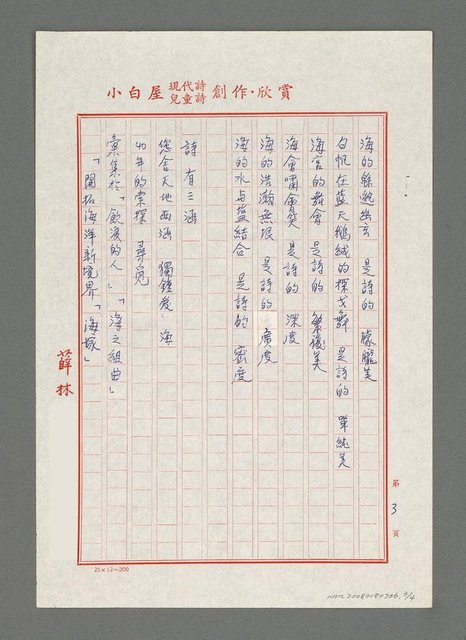 小白屋 現代詩 兒童詩 創作·欣賞
海的綿勉幽玄 是詩的 朦朧美
白帆在藍天鵝絨的探戈舞 是詩的 單純美
海宮的舞會 是詩的 繁複美
海會嘯會笑 是詩的 深度
海的浩瀚無垠 是詩的 廣度
海的水与藍結合 是詩的 密度
詩 有三涵
您含天地两涵 獨鍾愛 海
40年的索探 尋覓
彙集於「飲浪的人」「海之組曲」
「開拓海洋新境界」「海歌」
薛林
第 3 頁
25×12=300
NMTL20080180706. 3/4